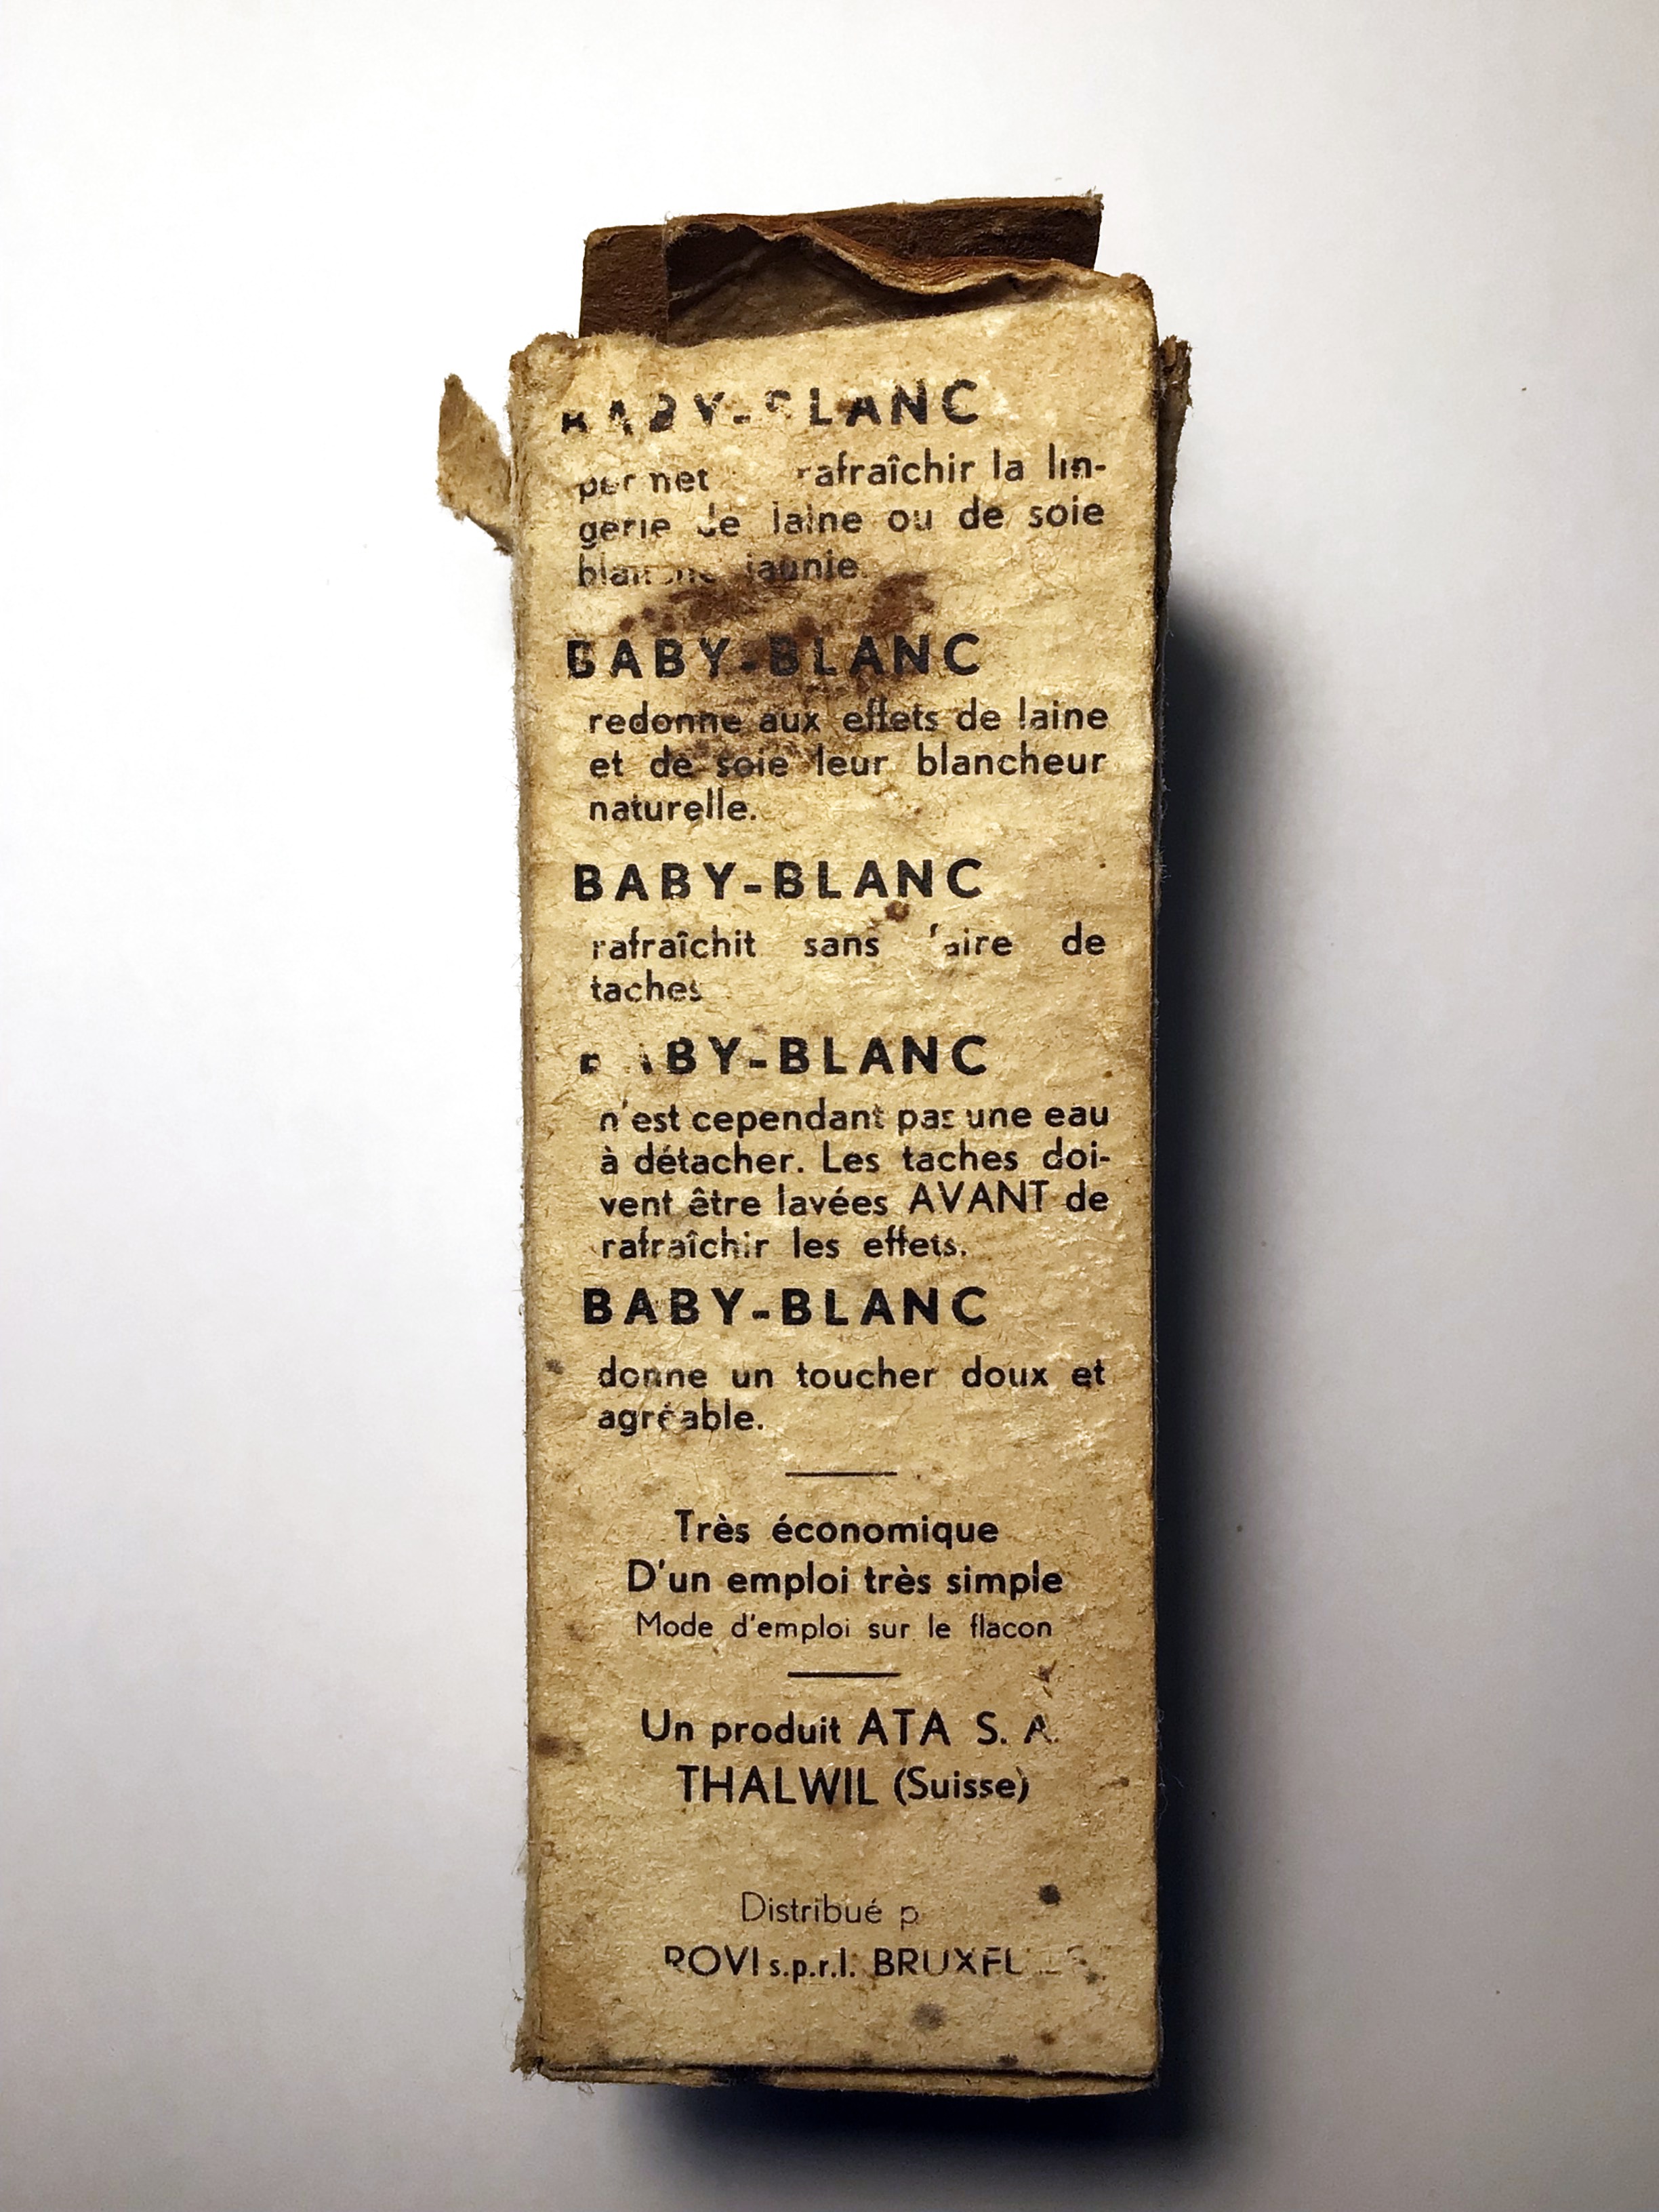 BABY-BLANC
permet rafraîchir la lin-
gerie de laine ou de soie
blanche jaunie.
BABY-BLANC
redonne aux effets de laine
et de soie leur blancheur
naturelle.
BABY-BLANC
rafraîchit sans faire de
taches
BABY-BLANC
n'est cependant pas une eau
à détacher. Les taches doi-
vent être lavées AVANT de
rafraîchir les effets.
BABY-BLANC
donne un toucher doux et
agréable.
Très économique
D'un emploi très simple
Mode d'emploi sur le flacon
Un produit ATA S. A.
THALWIL (Suisse)
Distribué
ROVI s.p.r.l. BRUXELLES